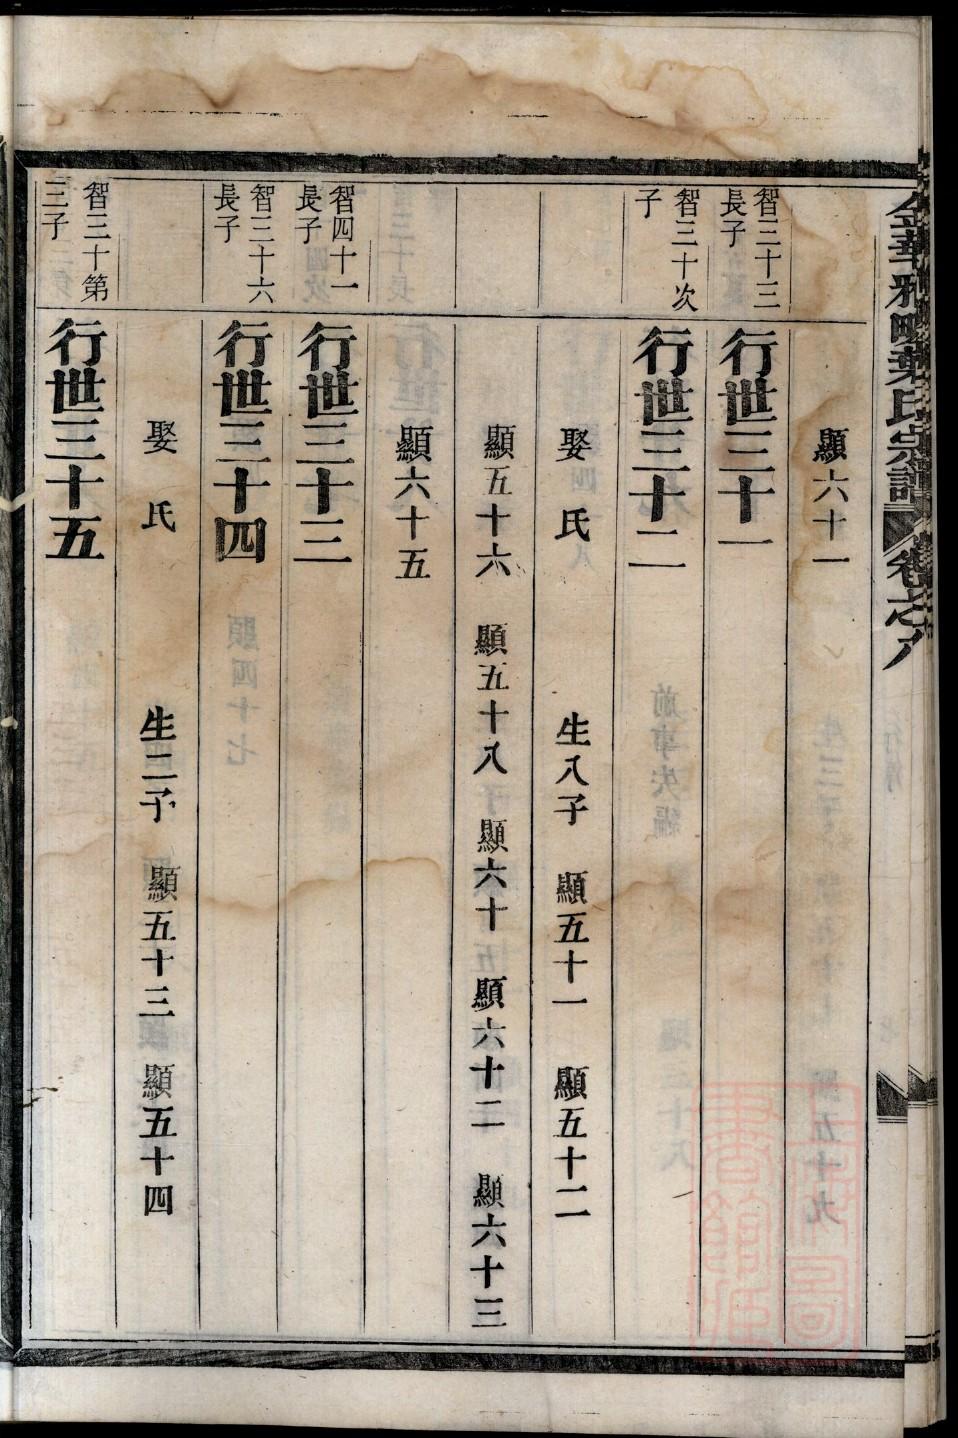 金華雅畈葉氏宗譜 卷之八
顯六十一
智三十三長子
行世三十一
智三十次子
行世三十二
娶 氏 生八子 顯五十一 顯五十二
顯五十六 顯五十八 顯六十 顯六十二 顯六十三
顯六十五
智四十一長子
行世三十三
智三十六長子
行世三十四
娶 氏 生二子 顯五十三 顯五十四
智三十第三子
行世三十五